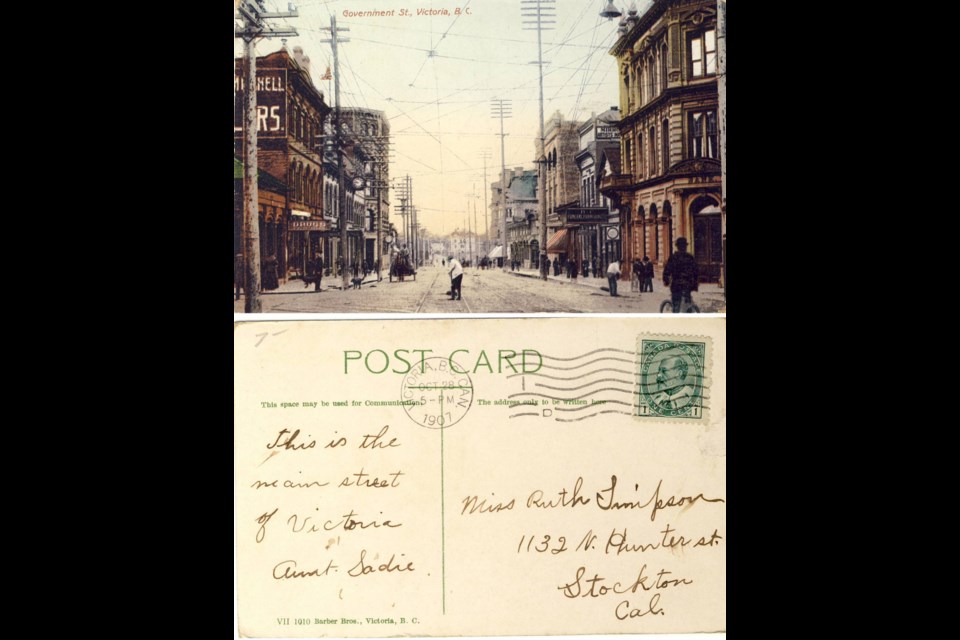 Government St., Victoria, B. C.
NELL
RS.
DRUGS
POST CARD
VICTORIA, B.C. CAN.
OCT 28
5 - PM
1907
D
This space may be used for Communication.
The address only to be written here
1
1
This is the
main street
of Victoria
Aunt Sadie.
Miss Ruth Simpson
1132 N. Hunter st.
Stockton
Cal.
VII 1010 Barber Bros., Victoria, B. C.